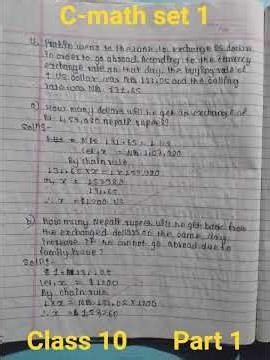 C-math set 1
went to the bank to exchange US dollar
in order to go abroad. According to the currency
exchange rate on that day, the buying rate of
1 US dollar was NRs 131.05 and the selling
rate was NRs 131.65
a) How many dollars will he get in exchange of
Rs 1,57,980 nepali rupees?
Solⁿ:-
= NRs 131.65 = 1 US
Let, x = NRs 1,57,980
By chain rule,
131.65 × x = 1 × 157980
or, x = 157980
131.65
∴ x = $1200 US
b) How many Nepali rupees will he get back from
the exchanged dollars on the same day
if he cannot go abroad due to
family issue?
Solⁿ:-
$1 = NRs 131.05
Let, x = $1200
By chain rule
1 × x = NRs 131.05 × 1200
∴ x = Rs 157260
Class 10 Part 1